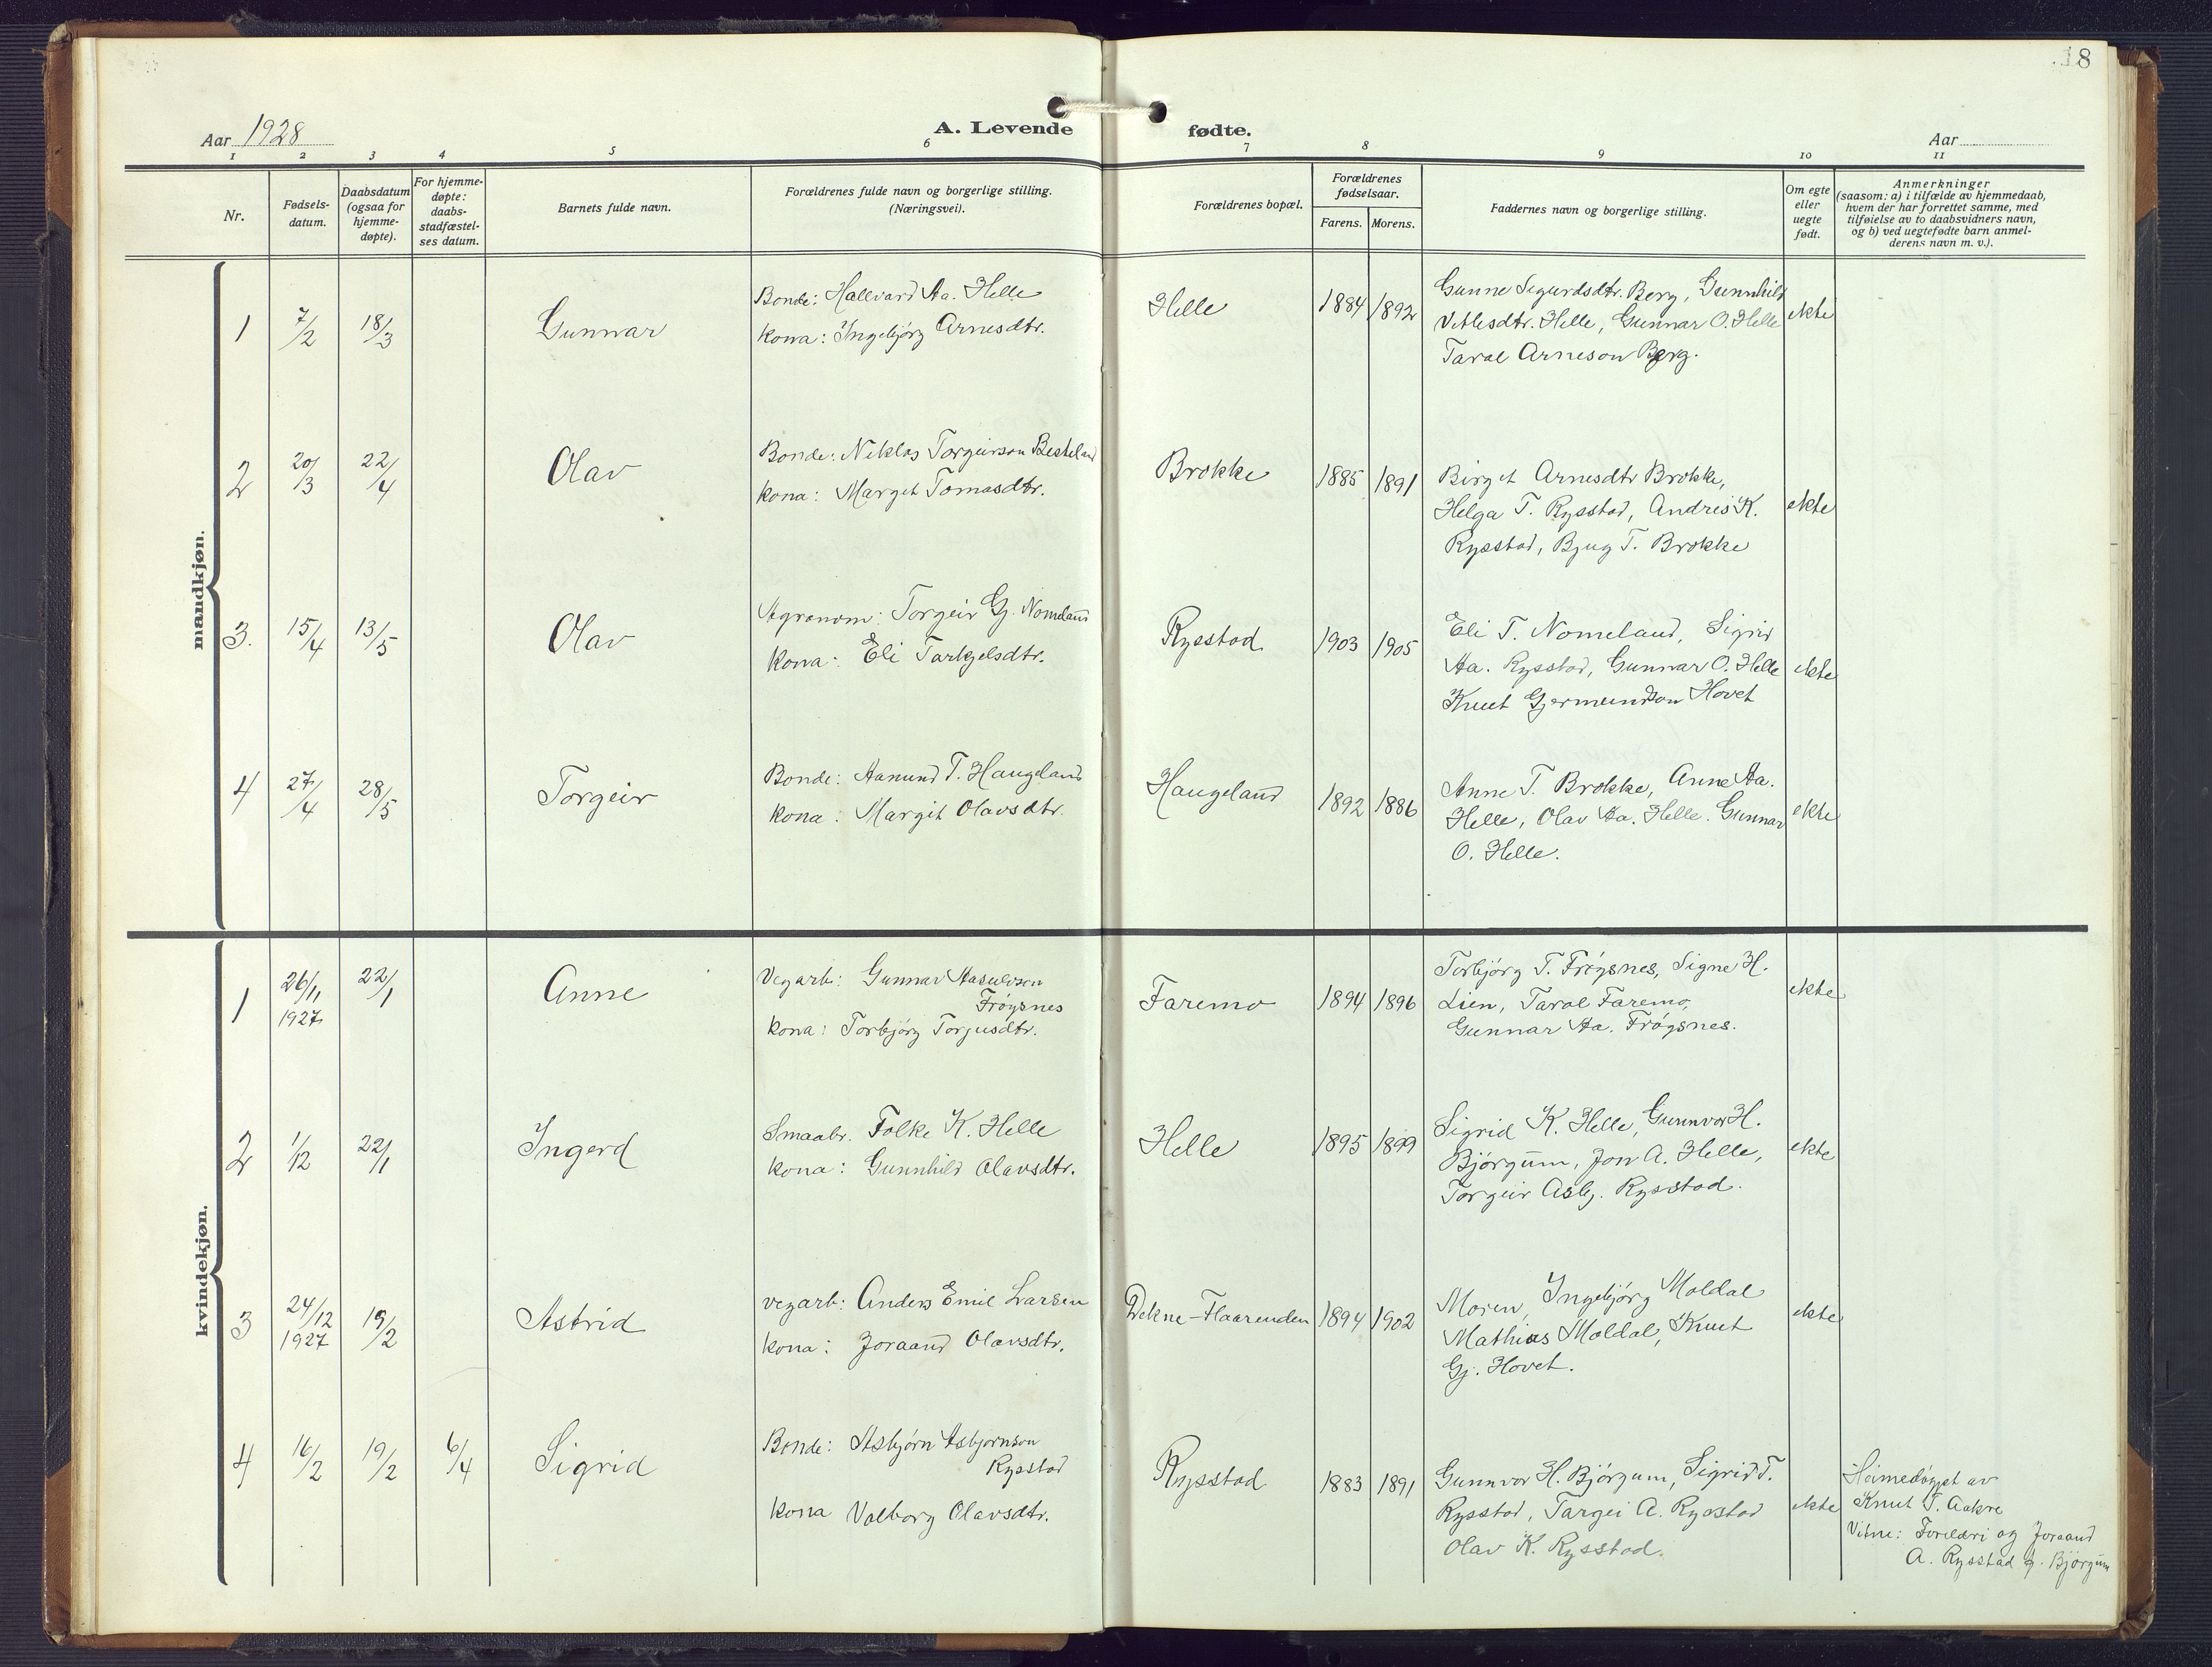 18
Aar 1928
A. Levende fødte.
Aar
1 2 3 4 5 6 7 8 9 10 11
Nr.
Fødsels-
datum.
Daabsdatum
(ogsaa for
hjemme-
døpte).
For hjemme-
døpte:
daabs-
stadfæstel-
ses datum.
Barnets fulde navn.
Forældrenes fulde navn og borgerlige stilling.
(Næringsvei).
Forældrenes bopæl.
Forældrenes
fødselsaar.
Farens. Morens.
Faddernes navn og borgerlige stilling.
Om egte
eller
uegte
født.
Anmerkninger
(saasom: a) i tilfælde av hjemmedaab,
hvem der har forrettet samme, med
tilføielse av to daabsvidners navn,
og b) ved uegtefødte barn anmel-
derens navn m. v.).
mandkjøn.
1 7/2 18/3 Gunnar
Bonde: Hallvard Aa. Helle
kona: Ingebjörg Arnesdtr.
Helle 1884 1892
Gunne Sigurdsdtr. Berg, Gunnhild
Vetlesdtr. Helle, Gunnar O. Helle
Tarol Arneson Berg.
ekte
2 20/3 22/4 Olav
Bonde: Neklas Torgeirson Besteland
kona: Marget Tomasdtr.
Brokke 1885 1891
Birgit Arnesdtr Brokke,
Helga T. Rysstad, Andres K.
Rysstad, Bjug T. Brokke
ekte
3. 15/4 13/5 Olav
Agronom: Torgeir Gj. Nomeland
Kona: Eli Tarkjelsdtr.
Rysstad 1903 1905
Eli T. Nomeland, Sigrid
Aa. Rysstad, Gunnar O. Helle
Knut Gjermundson Hovet
ekte
4 27/4 28/5 Torgeir
Bonde: Aanund T. Haugeland
kona: Margit Olavsdtr.
Haugeland 1892 1886
Anne T. Brokke, Anne Aa.
Helle, Olav Aa. Helle. Gunnar
O. Helle.
ekte
kvindekjøn.
1 26/11 1927 22/1 Anne
Vegarb: Gunnar Aasulvsen
Fröysnes
kona: Torbjörg Torjusdtr.
Faremo 1894 1896
Torbjörg T. Fröysnes, Signe H.
Lien, Tarol Faremo,
Gunnar Aa. Fröysnes.
ekte
2 1/12 22/1 Ingerd
Smaabr. Folke K. Helle
kona: Gunnhild Olavsdtr.
Helle 1895 1899
Sigrid K. Helle, Gunnvor H.
Björgum, Jon A. Helle,
Torgeir Asbj. Rysstad.
ekte
3 24/12 1927 19/2 Astrid
vegarb: Anders Emil Larsen
kona: Joraand Olavsdtr.
Dekne-Flaarenden 1894 1902
Moren, Ingebjörg Moldal
Mathias Moldal, Knut
Gj. Hovet.
ekte
4 16/2 19/2 6/4 Sigrid
Bonde: Asbjörn Asbjornson
Rysstad
kona Valborg Olavsdtr.
Rysstad 1883 1891
Gunnvor H. Björgum, Sigrid T.
Rysstad, Targei A. Rysstad
Olav K. Rysstad.
ekte
Heimedöypt av
Knut T. Aakre
Vitne: Foreldri og Joraand
A. Rysstad f. Björgum